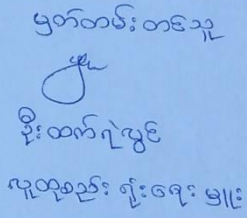 မှတ်တမ်းတင်သူ
ဦးထက်ရဲလွင်
လူထုစည်းရုံးရေးမှူး